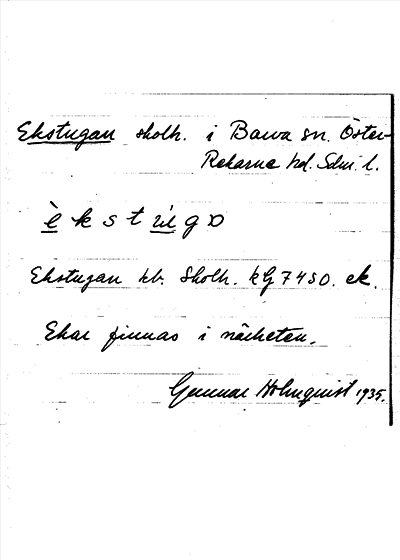 Ekstugan skolh. i Barva sn. Öster-
Rekarne hd. Sdm. l.
è k s t ù g ɒ
Ekstugan hb. Skolh. kG 7450. ek.
Ekar finnas i närheten.
Gunnar Holmquist 1935.